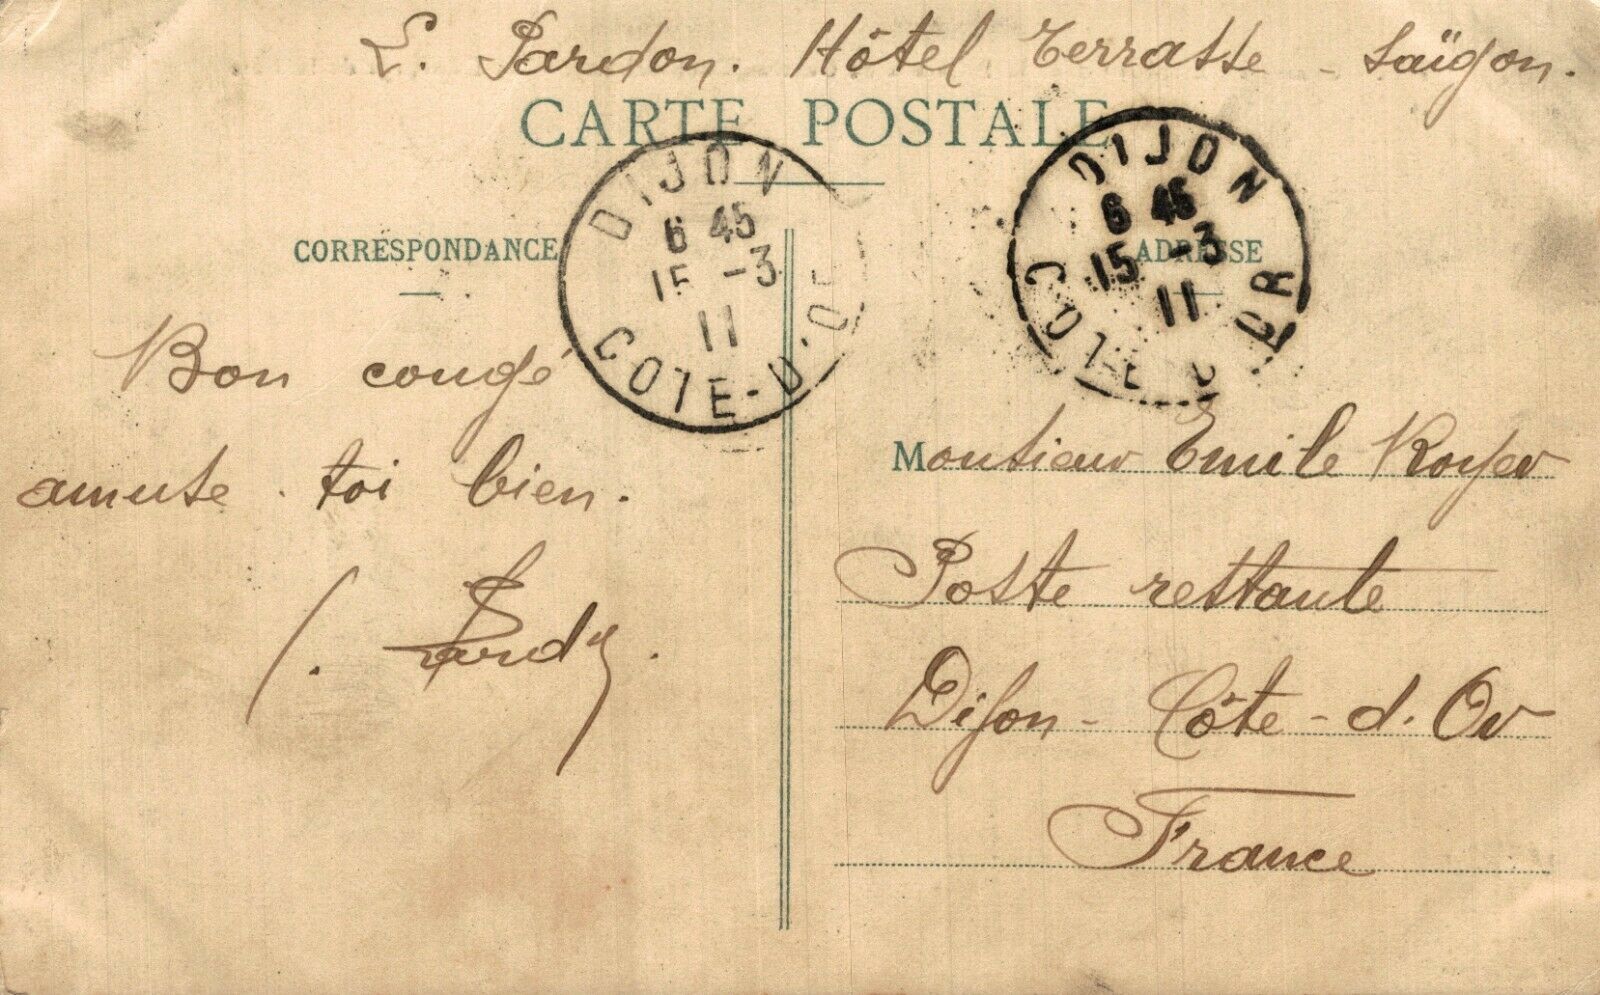 L. Pardon. Hôtel Terrasse - Saïgon.
CARTE POSTALE
DIJON
6 45
15 -3
11
COTE-D'OR
DIJON
6 45
15 -3
11
COTE-D'OR
CORRESPONDANCE
Bon congé
amuse-toi bien.
ADRESSE
Monsieur Emile Royer
Poste restante
Dijon - Côte-d'Or
France